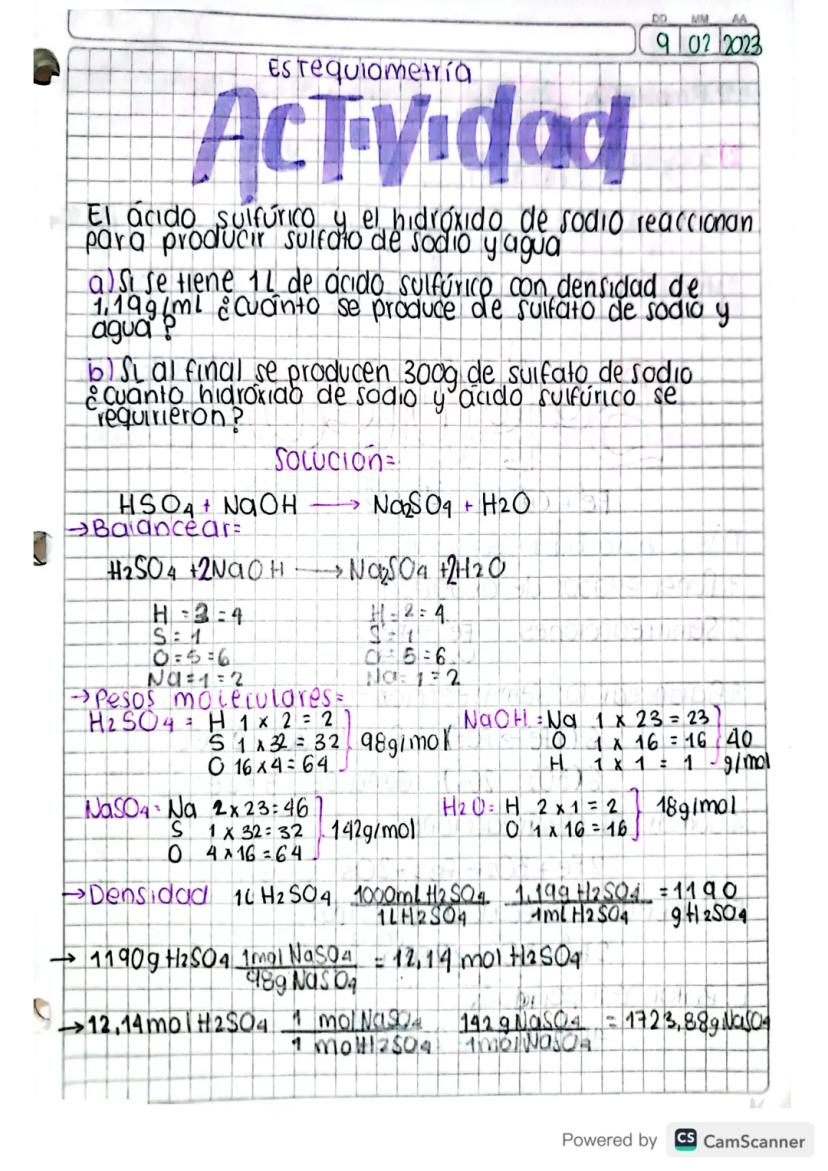 DD MM AA
9 02 2023
Estequiometría
Actividad
El ácido sulfúrico y el hidróxido de sodio reaccionan
para producir sulfato de sodio y agua
a) Si se tiene 1L de ácido sulfúrico con densidad de
1,19g/ml ¿Cuánto se produce de sulfato de sodio y
agua?
b) Si al final se producen 300g de sulfato de sodio
¿cuánto hidróxido de sodio y ácido sulfúrico se
requirieron?
Solución=
HSO4 + NaOH → Na2SO4 + H2O
→Balancear=
H2SO4 +2NaOH → Na2SO4 +2H2O
H = 3 = 4 H = 2 = 4
S = 1 S = 1
O = 5 = 6 O = 5 = 6
Na = 1 = 2 Na = 1 = 2
→Pesos moleculares=
H2SO4 = H 1 x 2 = 2 NaOH = Na 1 x 23 = 23
S 1 x 32 = 32 98g/mol O 1 x 16 = 16 40
O 16 x 4 = 64 H 1 x 1 = 1 g/mol
NaSO4 = Na 2 x 23 = 46 H2O = H 2 x 1 = 2 18g/mol
S 1 x 32 = 32 142g/mol O 1 x 16 = 16
O 4 x 16 = 64
→Densidad 1L H2SO4 1000ml H2SO4 1,19g H2SO4 = 1190
1L H2SO4 1ml H2SO4 g H2SO4
→ 1190g H2SO4 1mol NaSO4 = 12,14 mol H2SO4
98g NaSO4
→12,14mol H2SO4 1 mol NaSO4 142g NaSO4 = 1723,88g NaSO4
1 mol H2SO4 1mol NaSO4
Powered by CS CamScanner